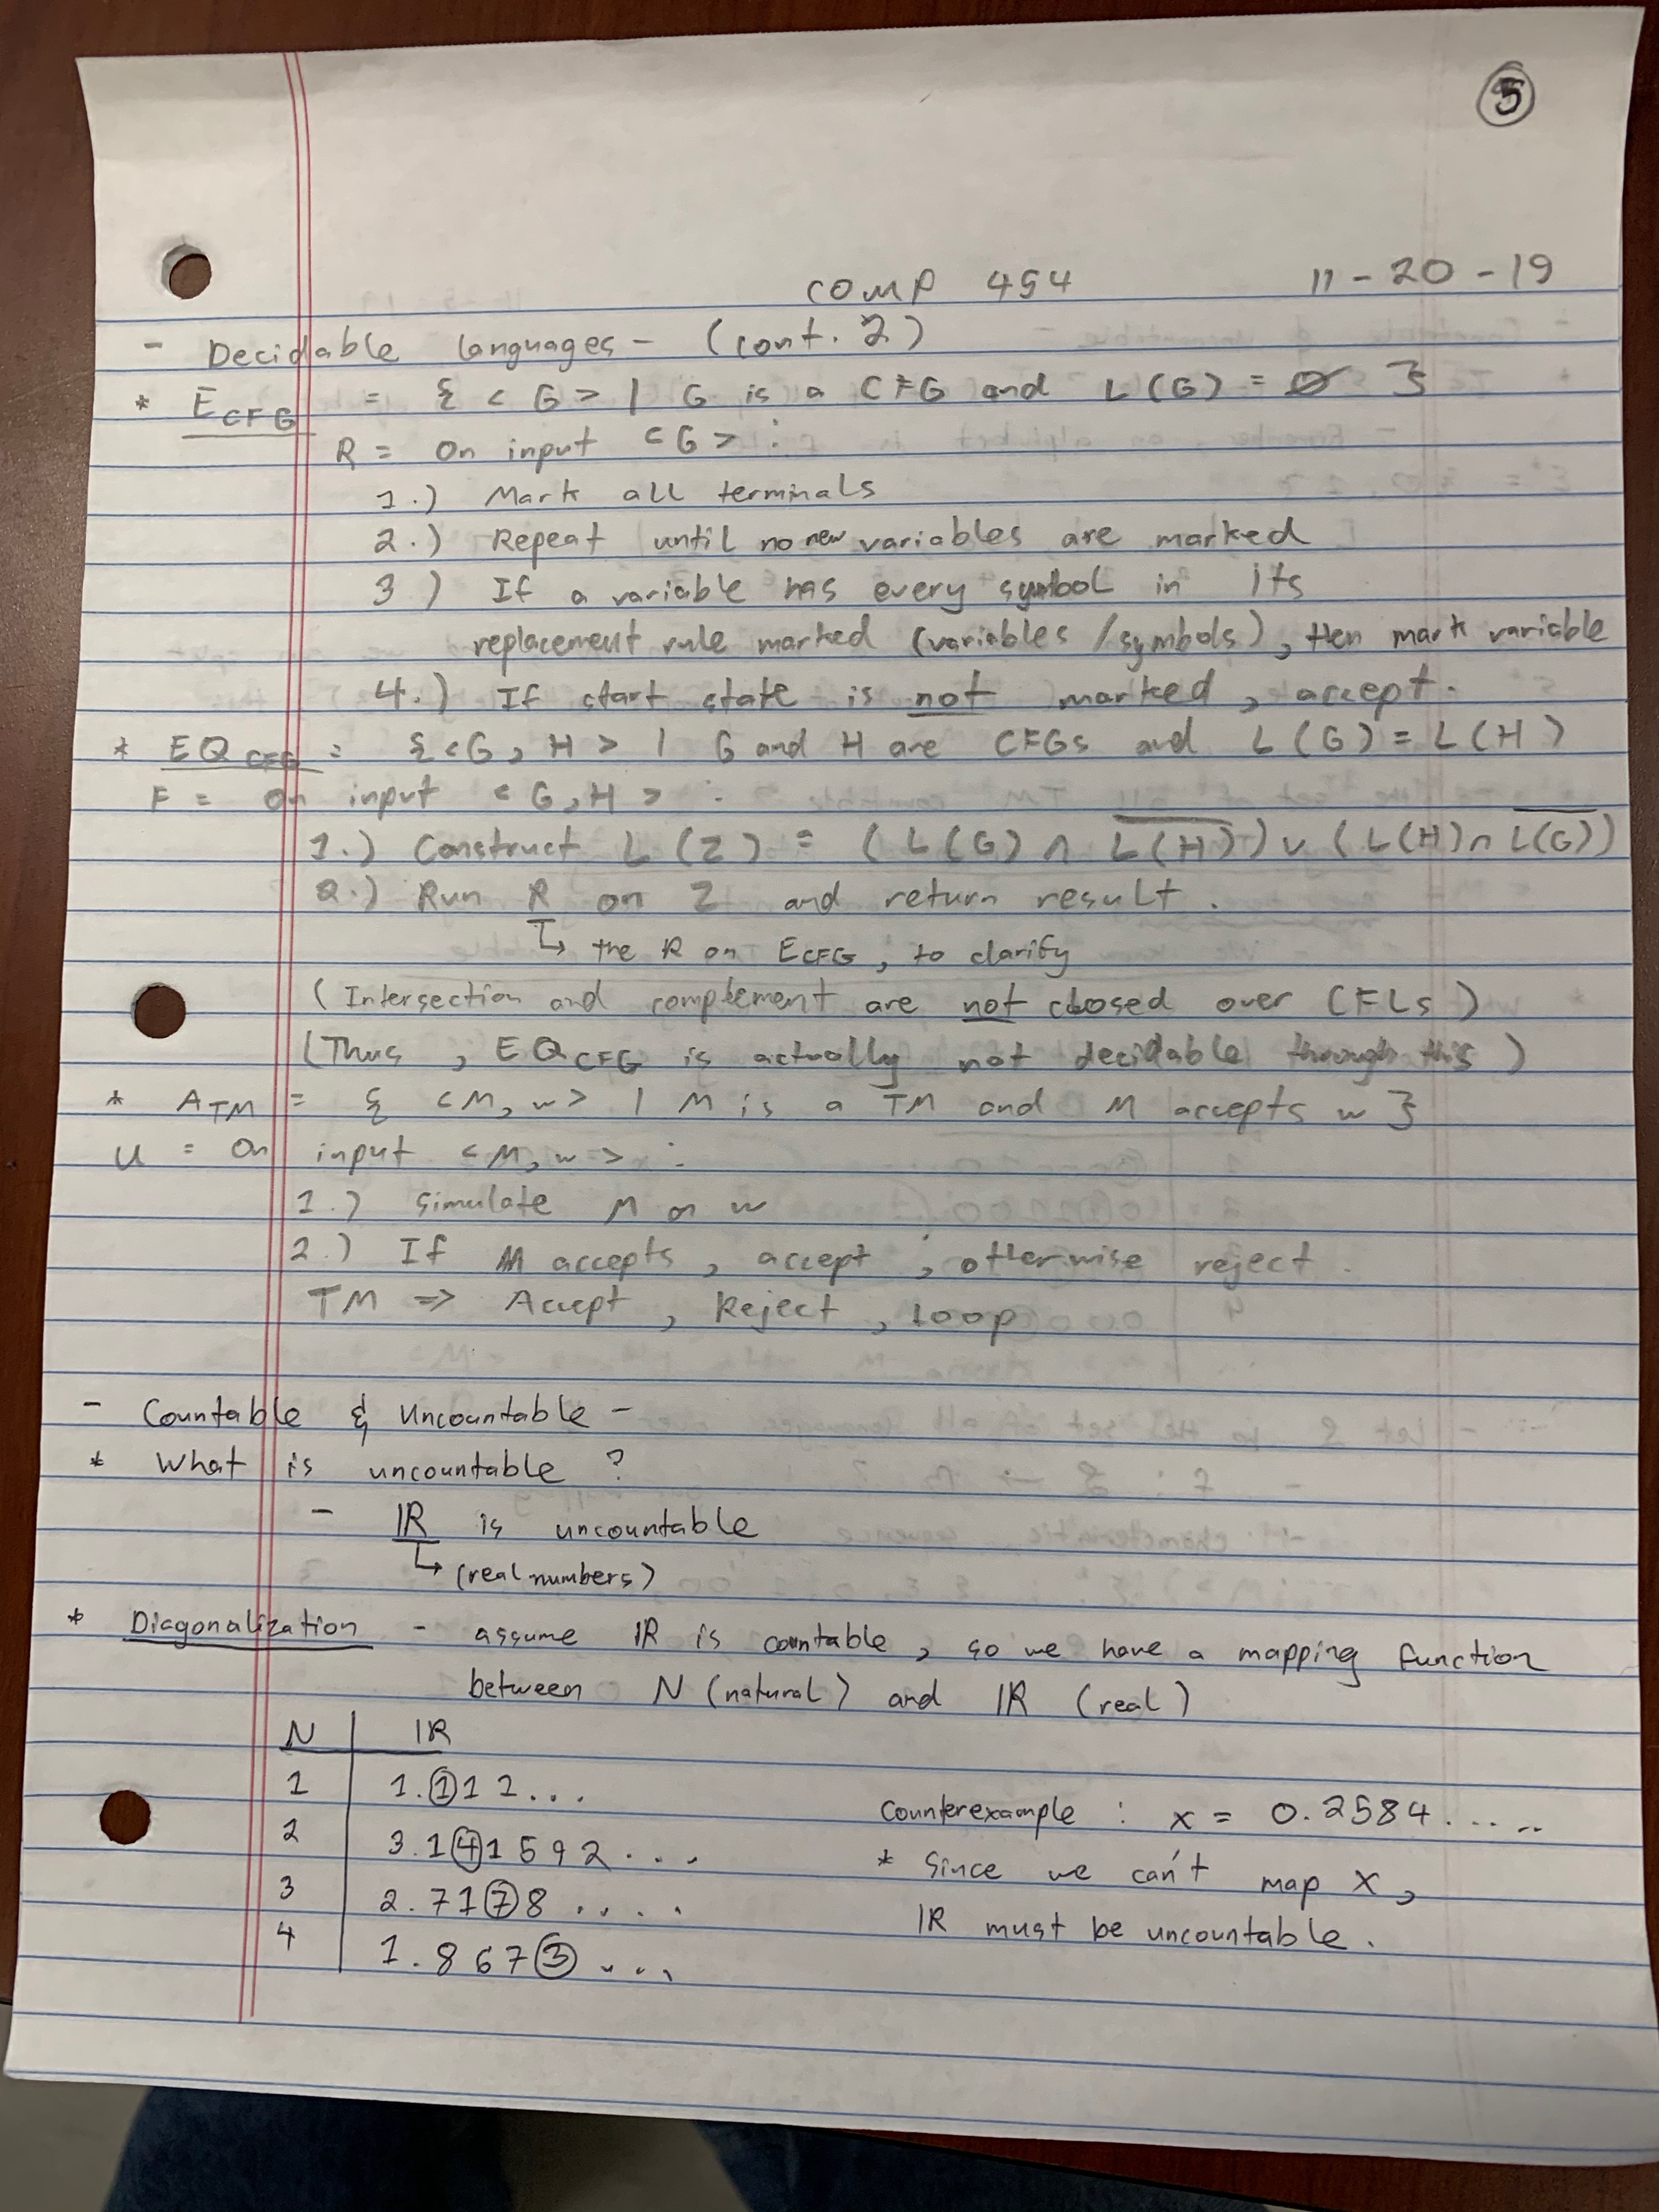 5
COMP 454 11-20-19
- Decidable languages - (cont. 2)
* E_CFG = { <G> | G is a CFG and L(G) = ∅ }
R = On input <G> :
1.) Mark all terminals
2.) Repeat until no new variables are marked
3 ) If a variable has every symbol in its
replacement rule marked (variables /symbols), then mark variable
4.) If start state is not marked, accept.
* EQ_CFG = { <G, H> | G and H are CFGs and L(G) = L(H)
F = On input <G,H> :
1.) Construct L(Z) = ( L(G) ∩ L̅(̅H̅)̅ ) ∪ ( L(H) ∩ L̅(̅G̅)̅ )
2.) Run R on Z and return result.
↳ the R on E_CFG, to clarify
(Intersection and complement are not closed over CFLs)
(Thus, EQ_CFG is actually not decidable through this)
* A_TM = { <M, w> | M is a TM and M accepts w }
U = On input <M, w> :
1.) Simulate M on w
2.) If M accepts, accept ; otherwise reject.
TM ⇒ Accept, Reject, loop
- Countable & Uncountable -
* What is uncountable ?
- ℝ is uncountable
↳ (real numbers)
* Diagonalization - assume ℝ is countable, so we have a mapping function
between N (natural) and ℝ (real)
N | ℝ
1 | 1.①11...
2 | 3.1④1592...
3 | 2.71⑦8....
4 | 1.867③...
Counterexample : x = 0.2584.....
* Since we can't map x,
ℝ must be uncountable.